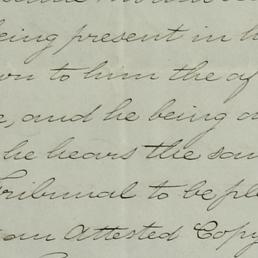 being present in
to him the
and he being
he hears the
Tribunal to be
an attested Copy